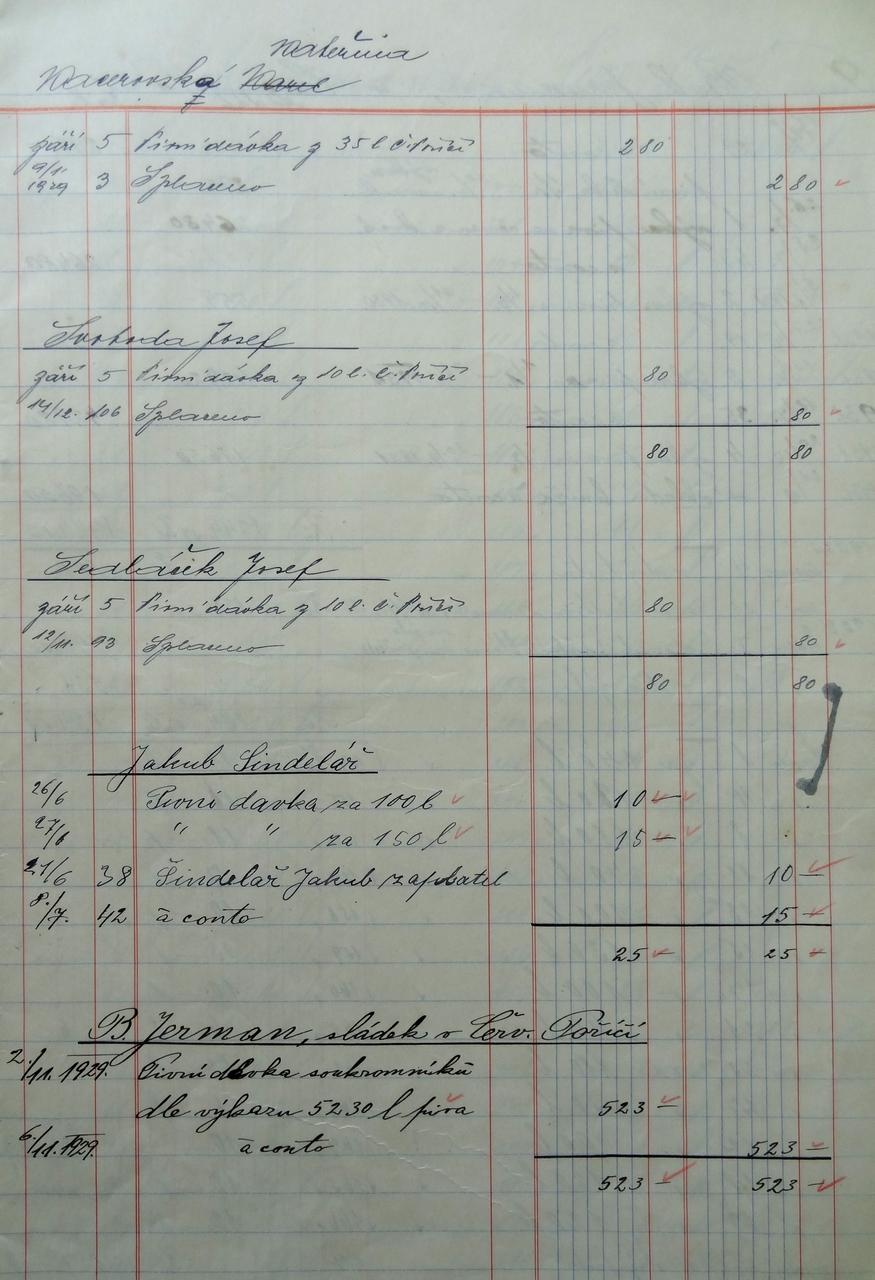 Kateřina
září 5 Pivní dávka z 35 l Č. Poříčí 2 80
9/1. 1929 3 Splaceno 2 80
Svoboda Josef
září 5 Pivní dávka z 10 l. Č. Poříčí 80
14/12. 106 Splaceno 80
80 80
Sedláček Josef
září 5 Pivní dávka z 10 l. Č. Poříčí 80
12/11. 93 Splaceno 80
80 80
Jakub Šindelář
26/6 Pivní davka za 100 l 10 —
27/6 " " za 150 l 15 —
21/6 38 Šindelář Jakub zaplatil 10 —
8./7. 42 à conto 15 —
25 — 25 —
B. Jerman, sládek v Červ. Poříčí
2./11. 1929. Pivní dávka soukromníků
dle výkazu 5230 l piva 523 —
6./11. 1929. à conto 523 —
523 — 523 —